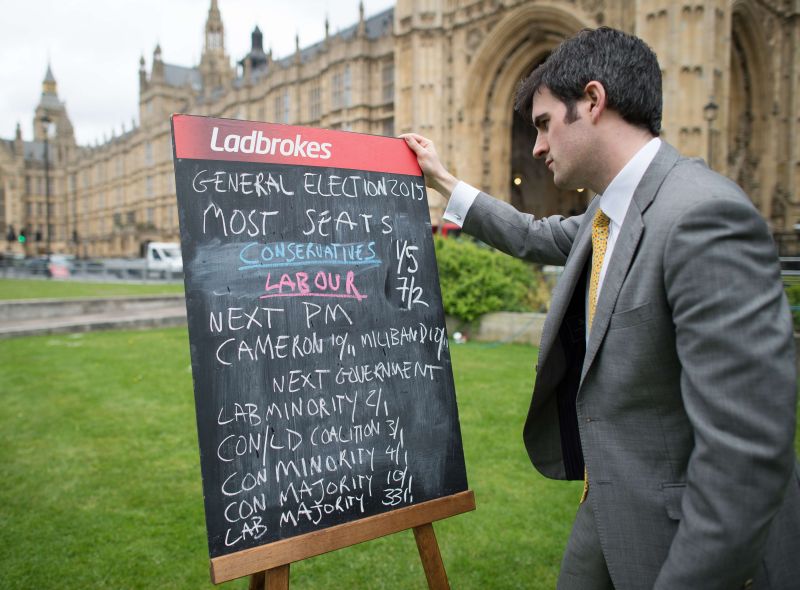 Ladbrokes
GENERAL ELECTION 2015
MOST SEATS
CONSERVATIVES 1/5
LABOUR 7/2
NEXT PM
CAMERON 10/11 MILIBAND 10/11
NEXT GOVERNMENT
LAB MINORITY 2/1
CON/LD COALITION 3/1
CON MINORITY 4/1
CON MAJORITY 10/1
LAB MAJORITY 33/1